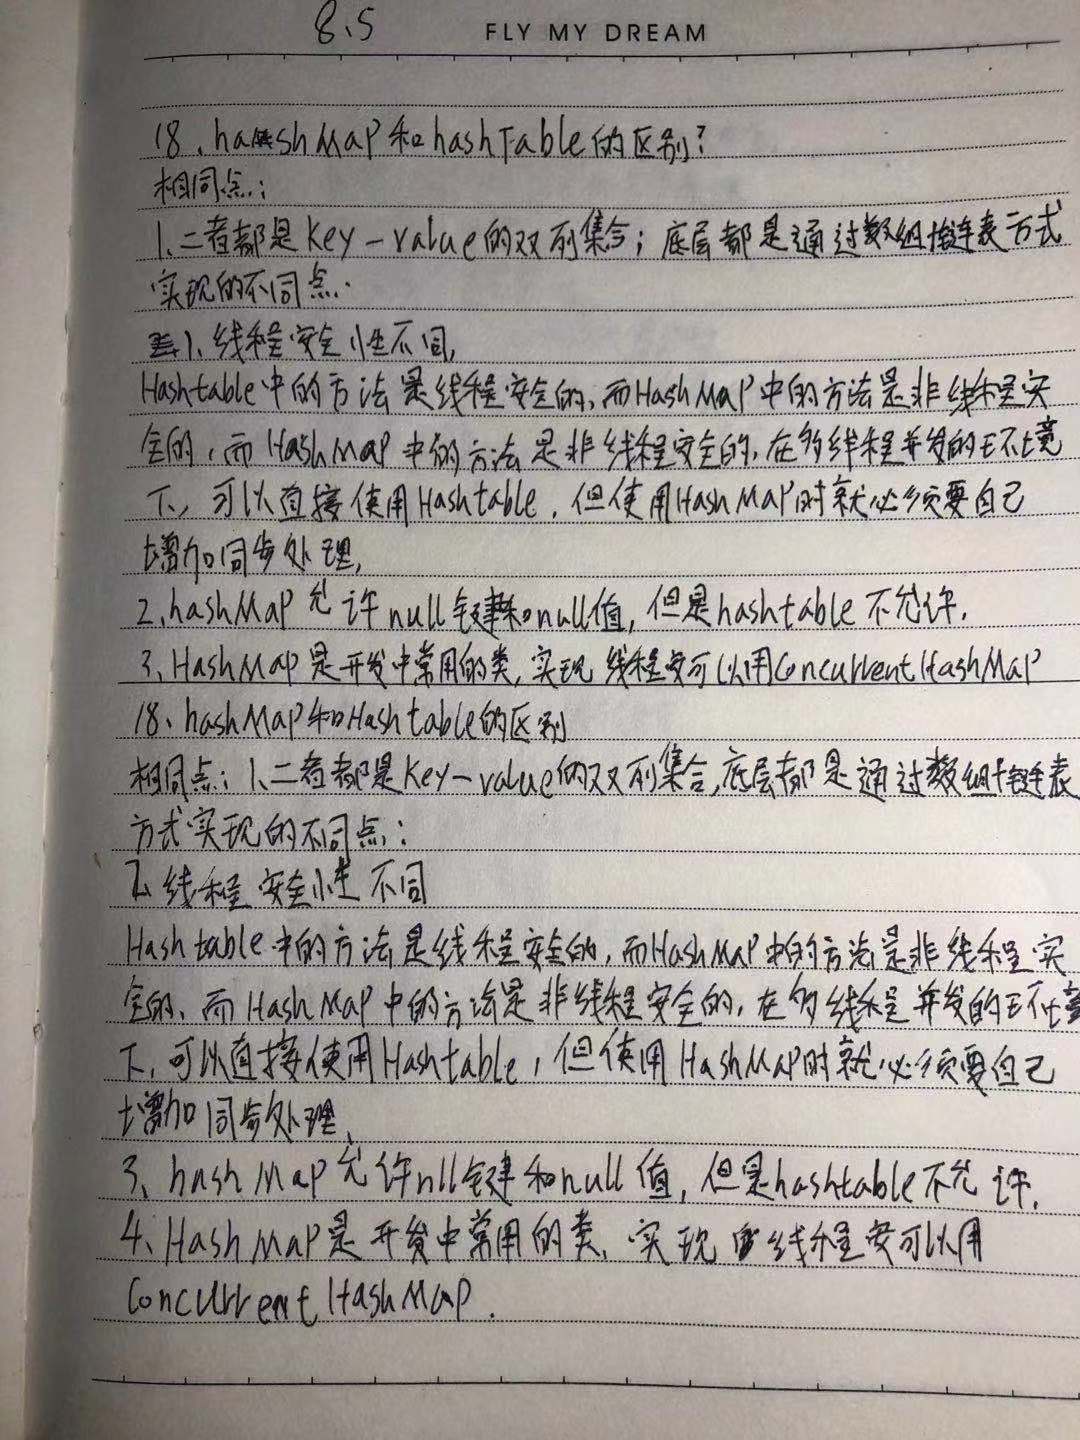 8.5 FLY MY DREAM
18、hashMap和hashTable的区别?
相同点:
1、二者都是Key-value的双列集合;底层都是通过数组+链表方式
实现的不同点.
1、线程安全性不同,
Hashtable中的方法是线程安全的,而HashMap中的方法是非线程安
全的,而HashMap中的方法是非线程安全的,在多线程并发的环境
下,可以直接使用Hashtable,但使用HashMap时就必须要自己
增加同步处理,
2、hashMap允许null键和null值,但是hashtable不允许.
3、HashMap是开发中常用的类,实现线程安可以用ConcurrentHashMap
18、hashMap和Hashtable的区别
相同点:1、二者都是Key-value的双列集合,底层都是通过数组+链表
方式实现的不同点:
2、线程安全性不同
Hashtable中的方法是线程安全的,而HashMap中的方法是非线程安
全的、而HashMap中的方法是非线程安全的,在多线程并发的环境
下,可以直接使用Hashtable,但使用HashMap时就必须要自己
增加同步处理、
3、hashMap允许null键和null值,但是hashtable不允许.
4、HashMap是开发中常用的类、实现线程安可以用
ConcurrentHashMap.